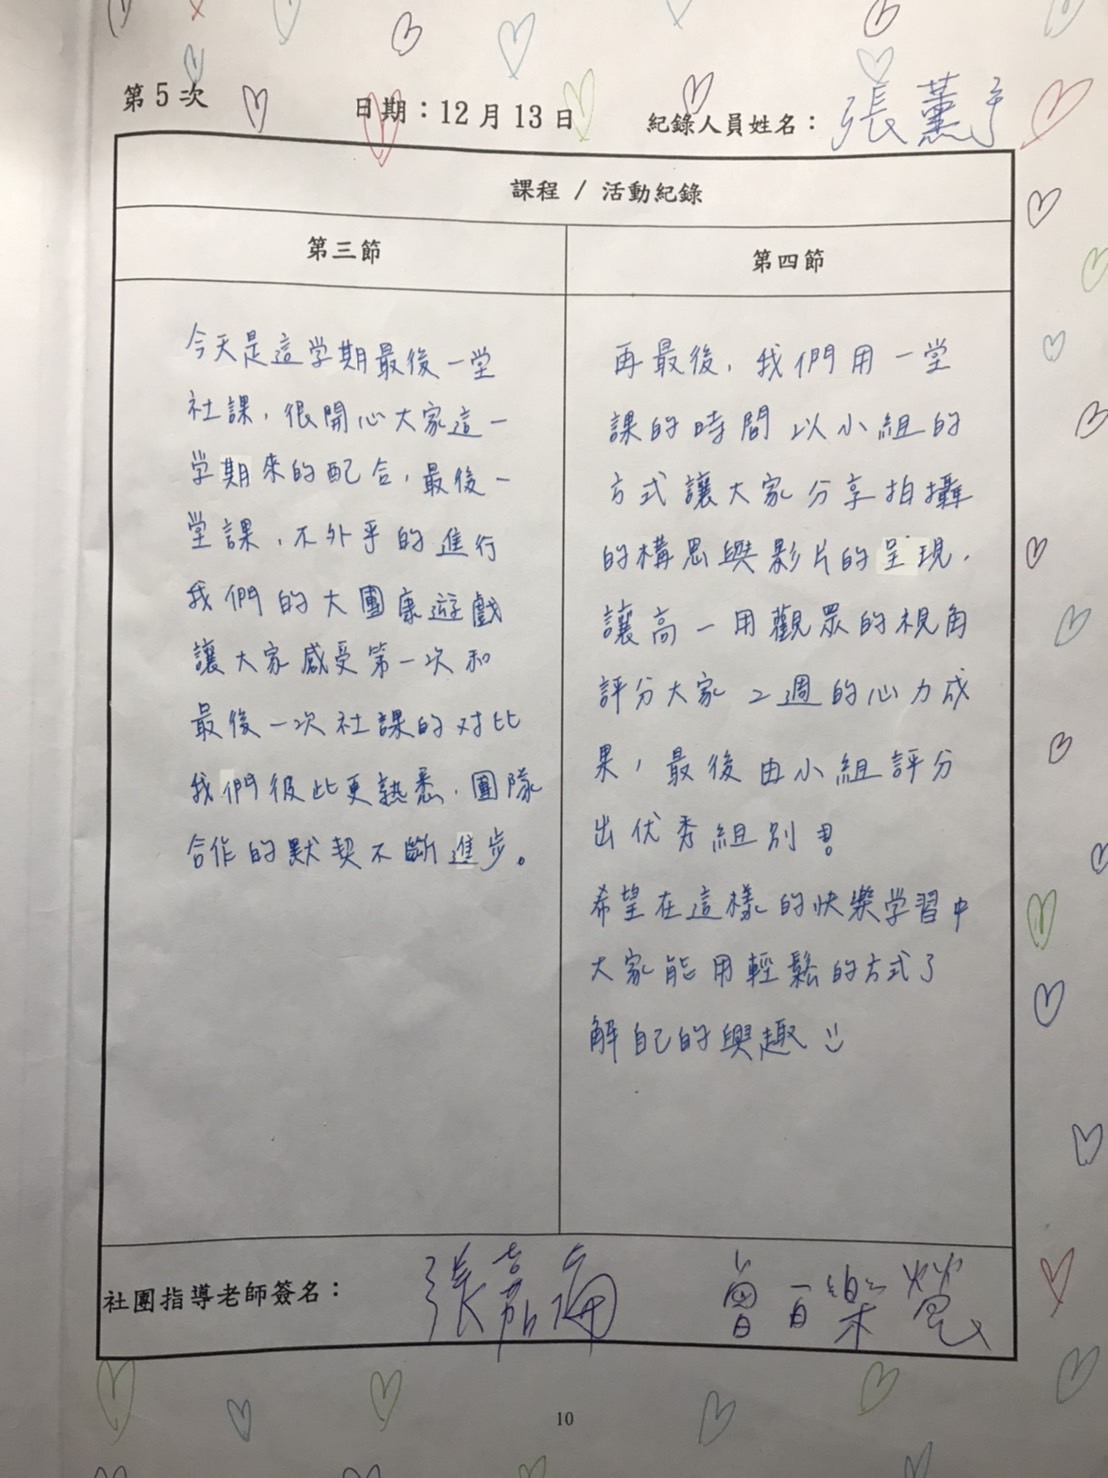 第 5 次
日期：12 月 13 日
紀錄人員姓名：張薰予
課程 / 活動紀錄
第三節
今天是這学期最後一堂
社課，很開心大家這一
学期來的配合，最後一
堂課，不外乎的進行
我們的大團康遊戲
讓大家感受第一次和
最後一次社課的对比
我們彼此更熟悉，團隊
合作的默契不斷進步。
第四節
再最後，我們用一堂
課的時間以小組的
方式讓大家分享拍攝
的構思與影片的呈現，
讓高一用觀眾的視角
評分大家2週的心力成
果，最後由小組評分
出优秀組別！
希望在這樣的快樂学習中
大家能用輕鬆的方式了
解自己的興趣
社團指導老師簽名：
張嘉
曾
10